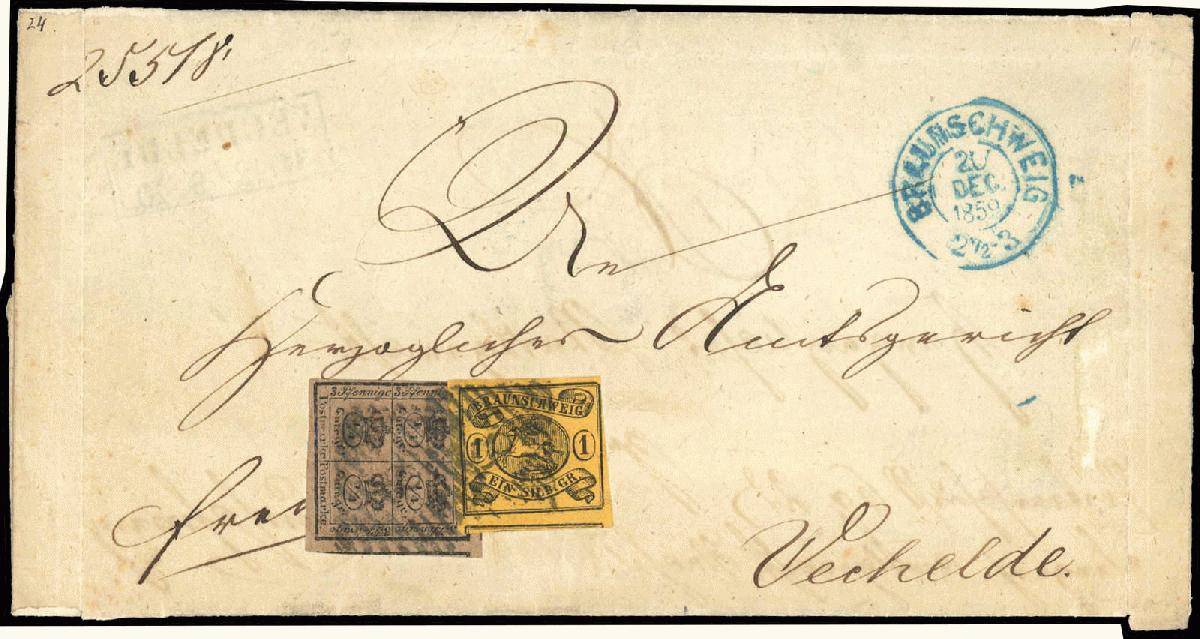 24
255/8.
BRAUNSCHWEIG
20
DEC.
1859
2½-3
An
Herzogliches Amtsgericht
3 Pfennige 3 Pfennige
BRAUNSCHWEIG
1 1
EIN SILB. GR.
Vechelde.